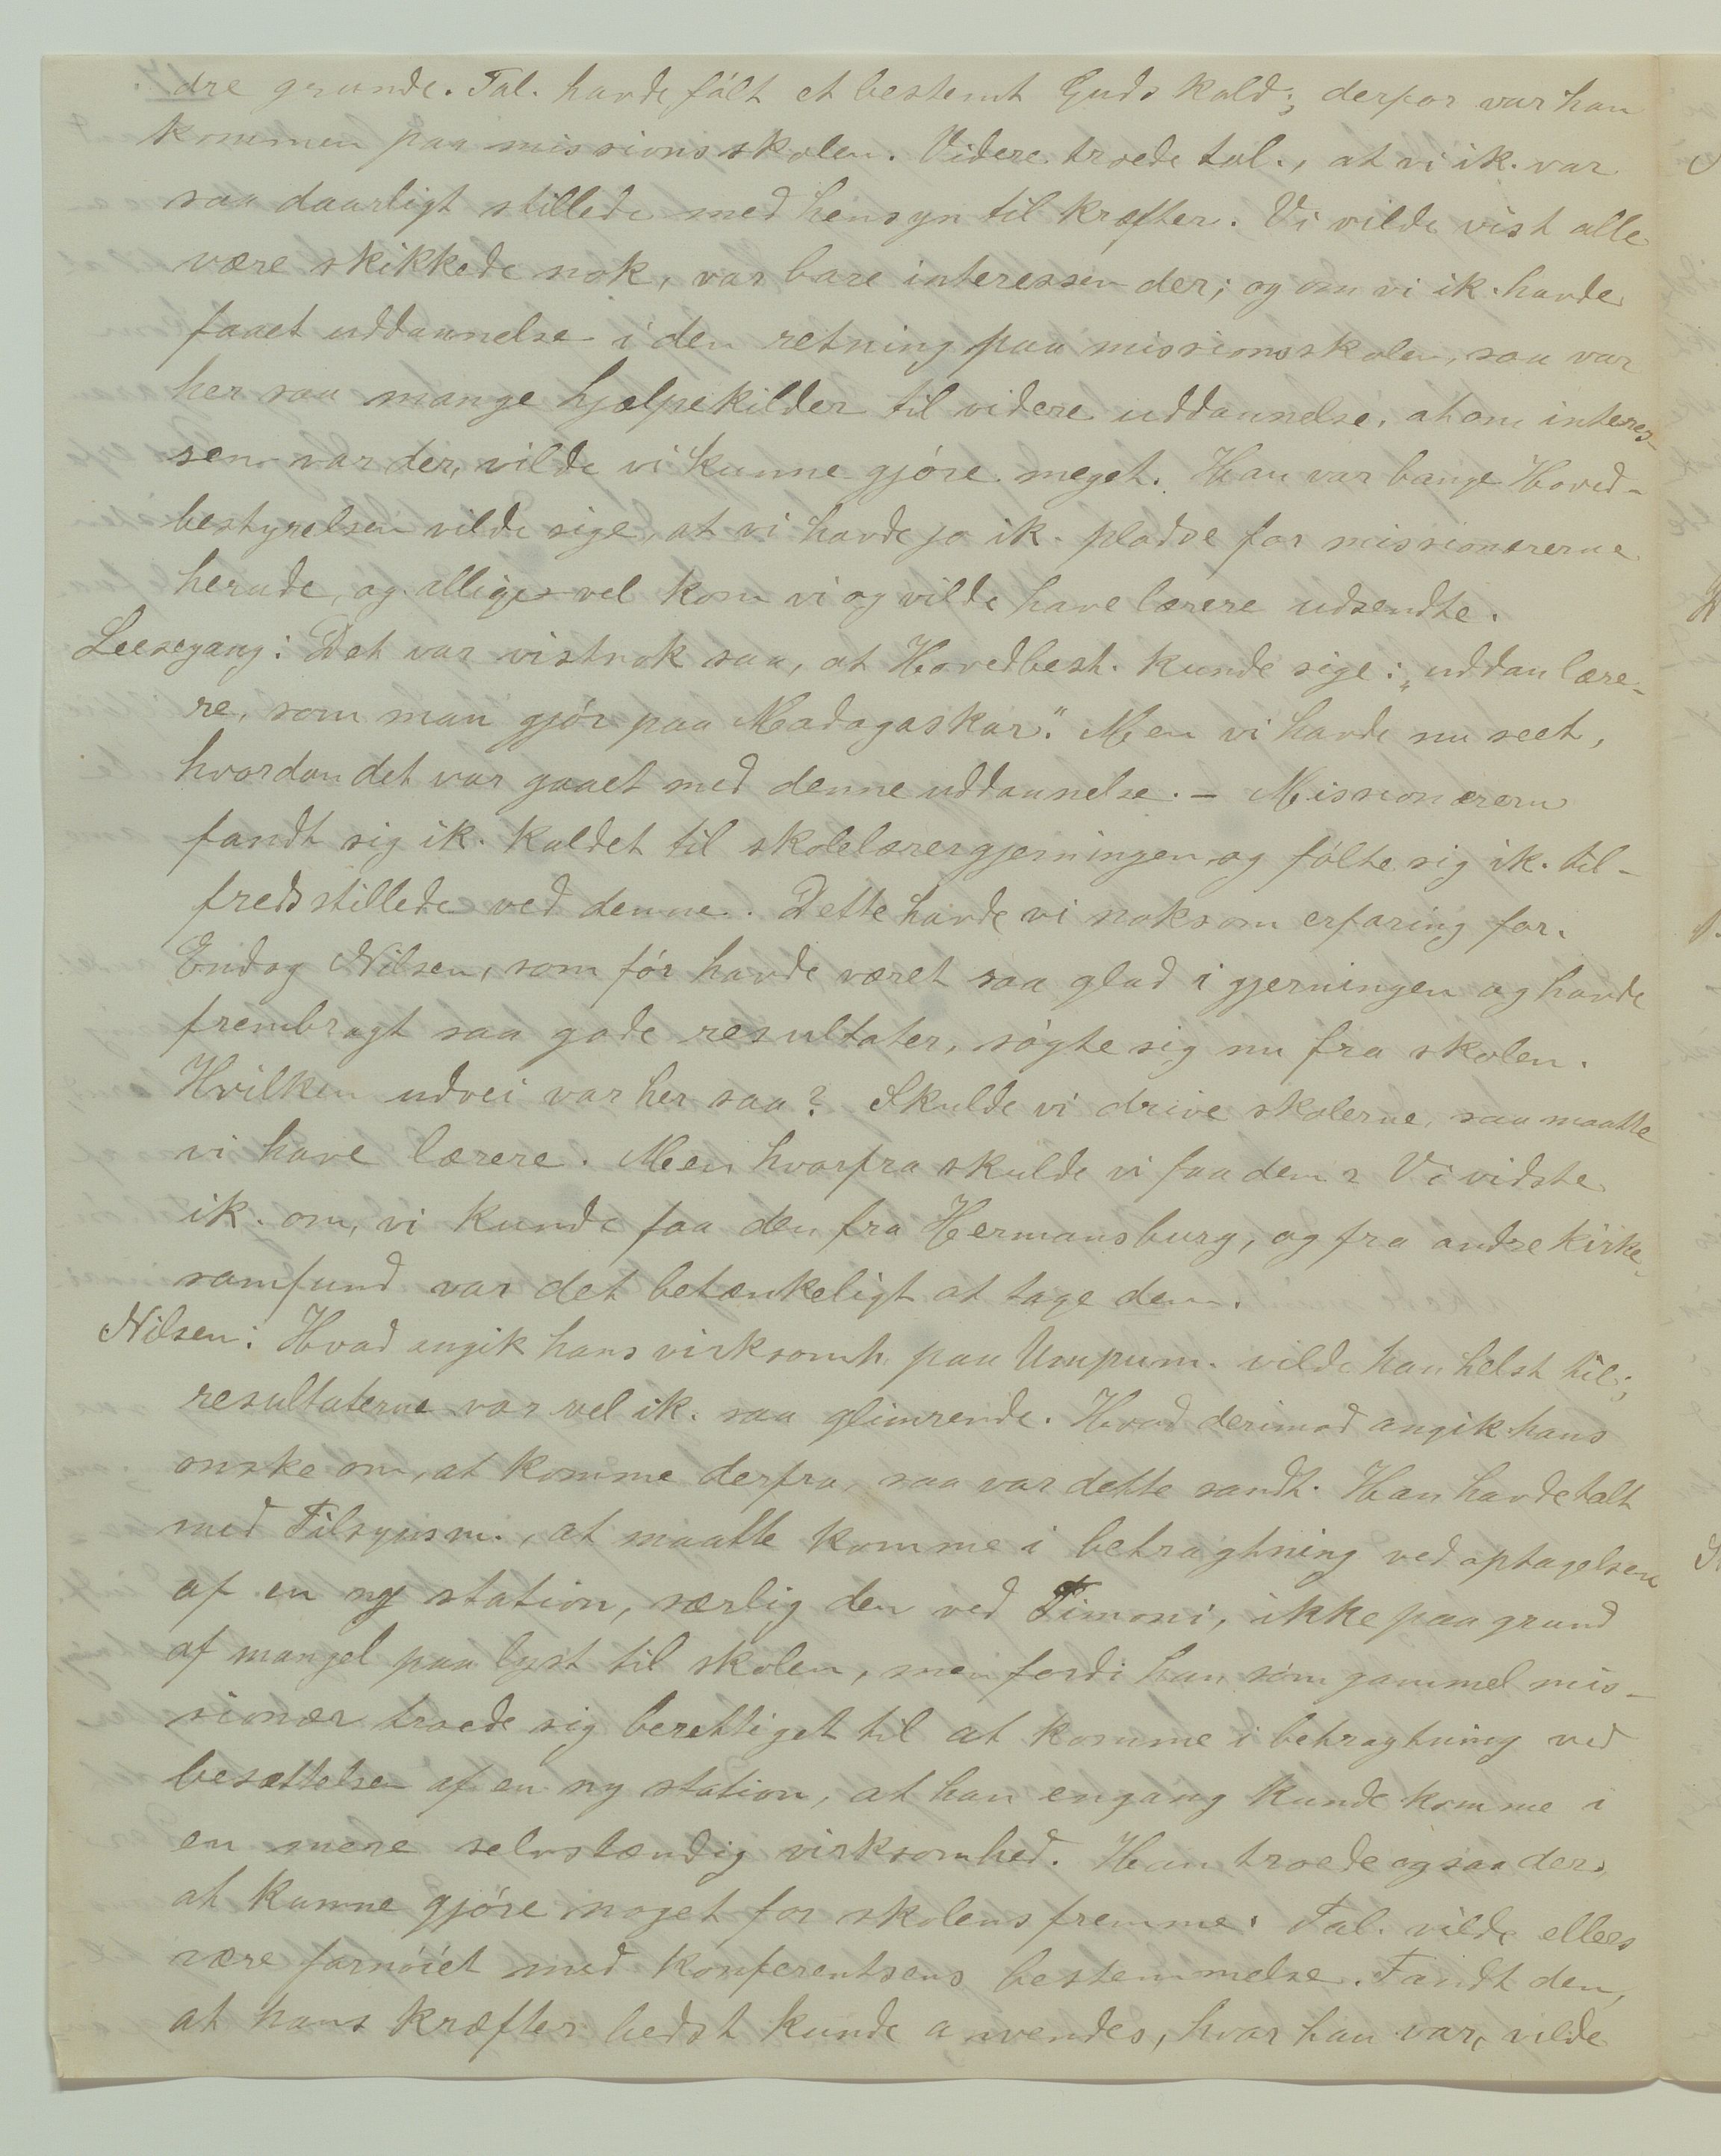 dre grunde. Tal. havde følt et bestemt Guds kald; derfor var han
kommen paa missionsskolen. Videre troede tal., at vi ik. var
saa daarligt stillede med hensyn til kræfter. Vi vilde vist alle
være skikkede nok, var bare interessen der; og om vi ik. havde
faaet uddannelse i den retning paa missionsskolen, saa var
her saa mange hjælpekilder til videre uddannelse, at om interes-
sen var der, vilde vi kunne gjøre meget. Han var bange Hoved-
bestyrelsen vilde sige, at vi havde jo ik. pladse for missionærerne
herude, og alligevel kom vi og vilde have lærere udsendte.
Leesegang: Det var vistnok saa, at Hovedbest. kunde sige: „uddan lære-
re, som man gjør paa Madagaskar." Men vi havde nu seet,
hvordan det var gaaet med denne uddannelse. – Missionærern
fandt sig ik. kaldet til skolelærergjerningen og følte sig ik. til-
fredsstillede ved denne. Dette havde vi noksom erfaring for.
Endog Nilsen, som før havde været saa glad i gjerningen og havde
frembragt saa gode resultater, søgte sig nu fra skolen.
Hvilken udvei var her saa? Skulde vi drive skolerne, saa maatte
vi have lærere. Men hvorfra skulde vi faa dem? Vi vidste
ik. om, vi kunde faa dem fra Hermansburg, og fra andre kirke-
samfund var det betænkeligt at tage dem.
Nilsen: Hvad angik hans virksomh. paa Umpum. vilde han helst tie;
resultaterne var vel ik. saa glimrende. Hvad derimod angik hans
ønske om, at komme derfra, saa var dette sandt. Han havde talt
med Tilsynsm., at maatte komme i betragtning ved optagelsen
af en ny station, særlig den ved Timoni, ikke paa grund
af mangel paa lyst til skolen, men fordi han som gammel mis-
sionær troede sig berettiget til at komme i betragtning ved
besættelsen af en ny station, at han engang kunde komme i
en mere selvstændig virksomhed. Han troede ogsaa der,
at kunne gjøre noget for skolens fremme. Tal. vilde ellers
være fornøiet med konferentsens bestemmelse. Fandt den,
at hans kræfter bedst kunde anvendes, hvor han var, vilde